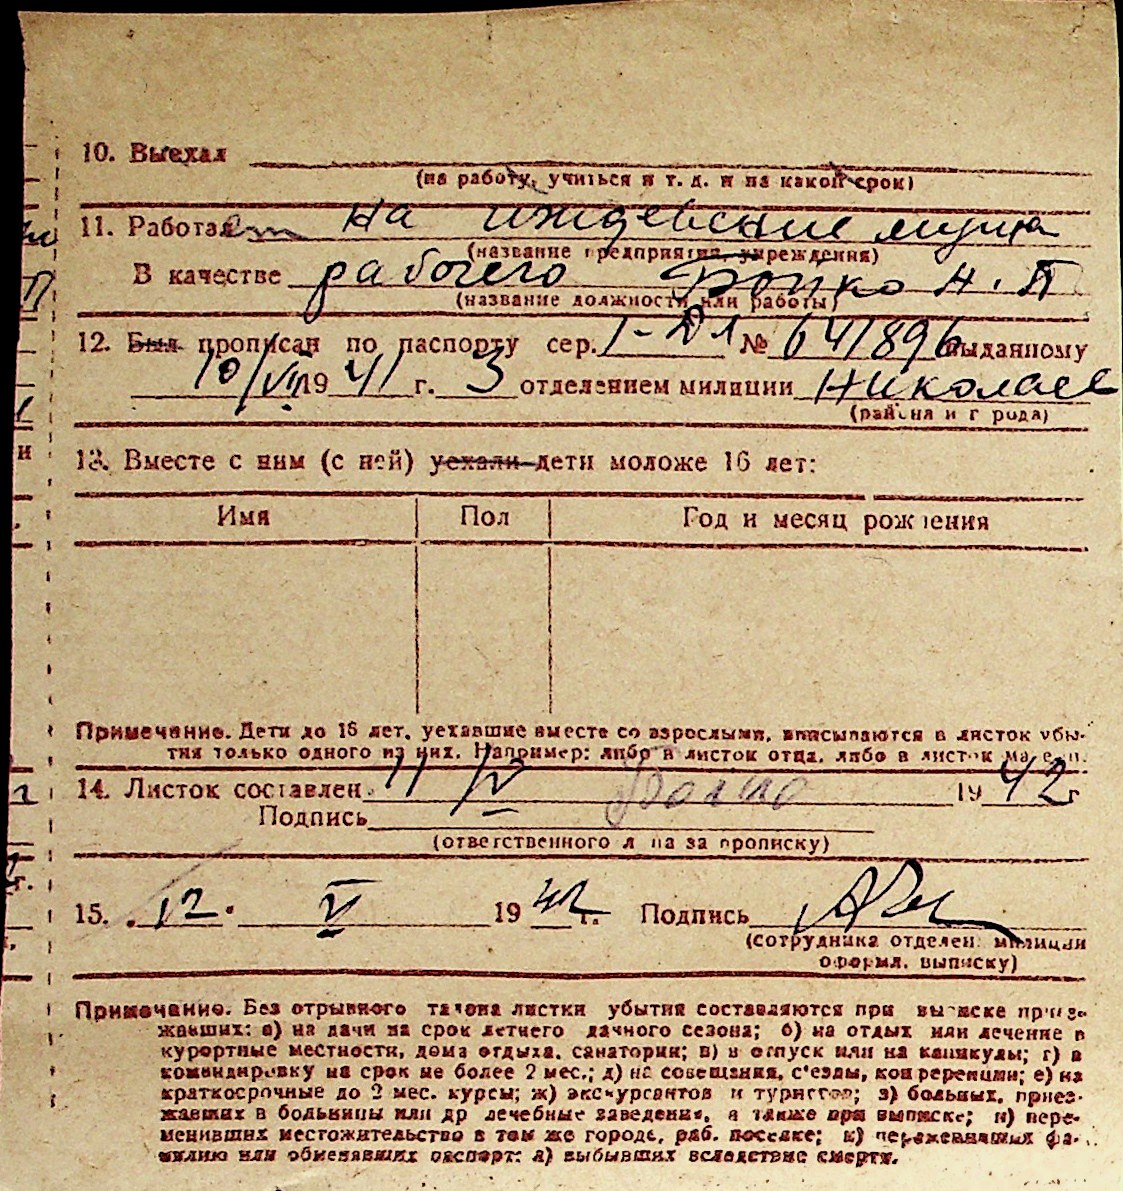 10. Выехал
(на работу, учиться и т. д. и на какой срок)
11. Работает на иждевение мужа
(название предприятия, учреждения)
В качестве рабочего Бойко Н. П
(название должности или работы)
12. Был прописан по паспорту сер. № 641896 выданному
10/VII 1941 г. 3 отделением милиции Николаев
(района и города)
13. Вместе с ним (с ней) уехали дети моложе 16 лет:
Имя Пол Год и месяц рождения
Примечание. Дети до 16 лет, уехавшие вместе со взрослыми, вписываются в листок убы-
тия только одного из них. Например: либо в листок отца, либо в листок матери.
14. Листок составлен 11/V 1942 г
Подпись
(ответственного лица за прописку)
15. 12. V 1942 г. Подпись
(сотрудника отделен. милиции
оформл. выписку)
Примечание. Без отрывного талона листки убытия составляются при выписке приез-
жавших: а) на дачи на срок летнего дачного сезона; б) на отдых или лечение в
курортные местности, дома отдыха, санатории; в) в отпуск или на каникулы; г) в
командировку на срок не более 2 мес.; д) на совещания, с'езды, конференции; е) на
краткосрочные до 2 мес. курсы; ж) экскурсантов и туристов; з) больных, приез-
жавших в больницы или др лечебные заведения, а также при выписке; и) пере-
менивших местожительство в том же городе, раб. поселке; к) переменивших фа-
милию или обменявших паспорт; л) выбывших вследствие смерти.